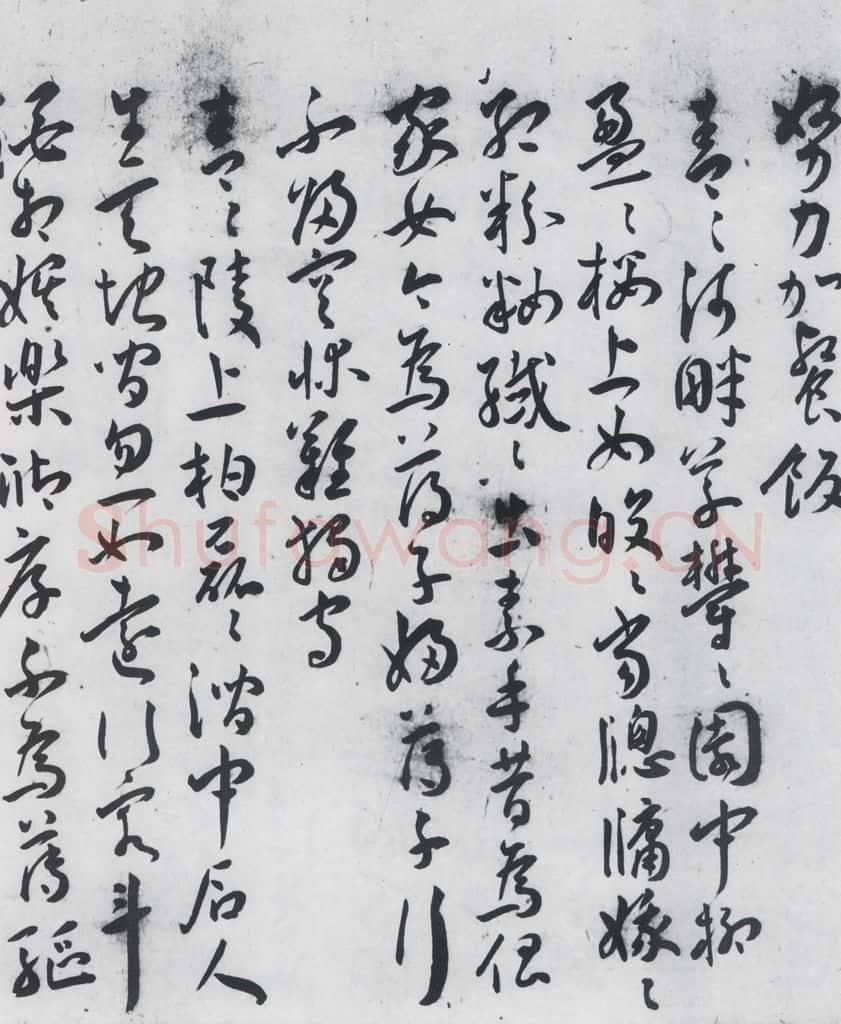 努力加餐飯
青〻河畔草欝〻園中柳
盈〻樓上女皎〻當牕牖娥〻
紅粉粧纖〻出素手昔為倡
家女今為蕩子婦蕩子行
不歸空牀難獨守
青〻陵上柏磊〻澗中石人
生天地間忽如遠行客斗
酒相娛樂聊厚不為薄驅
Shufawang.CN